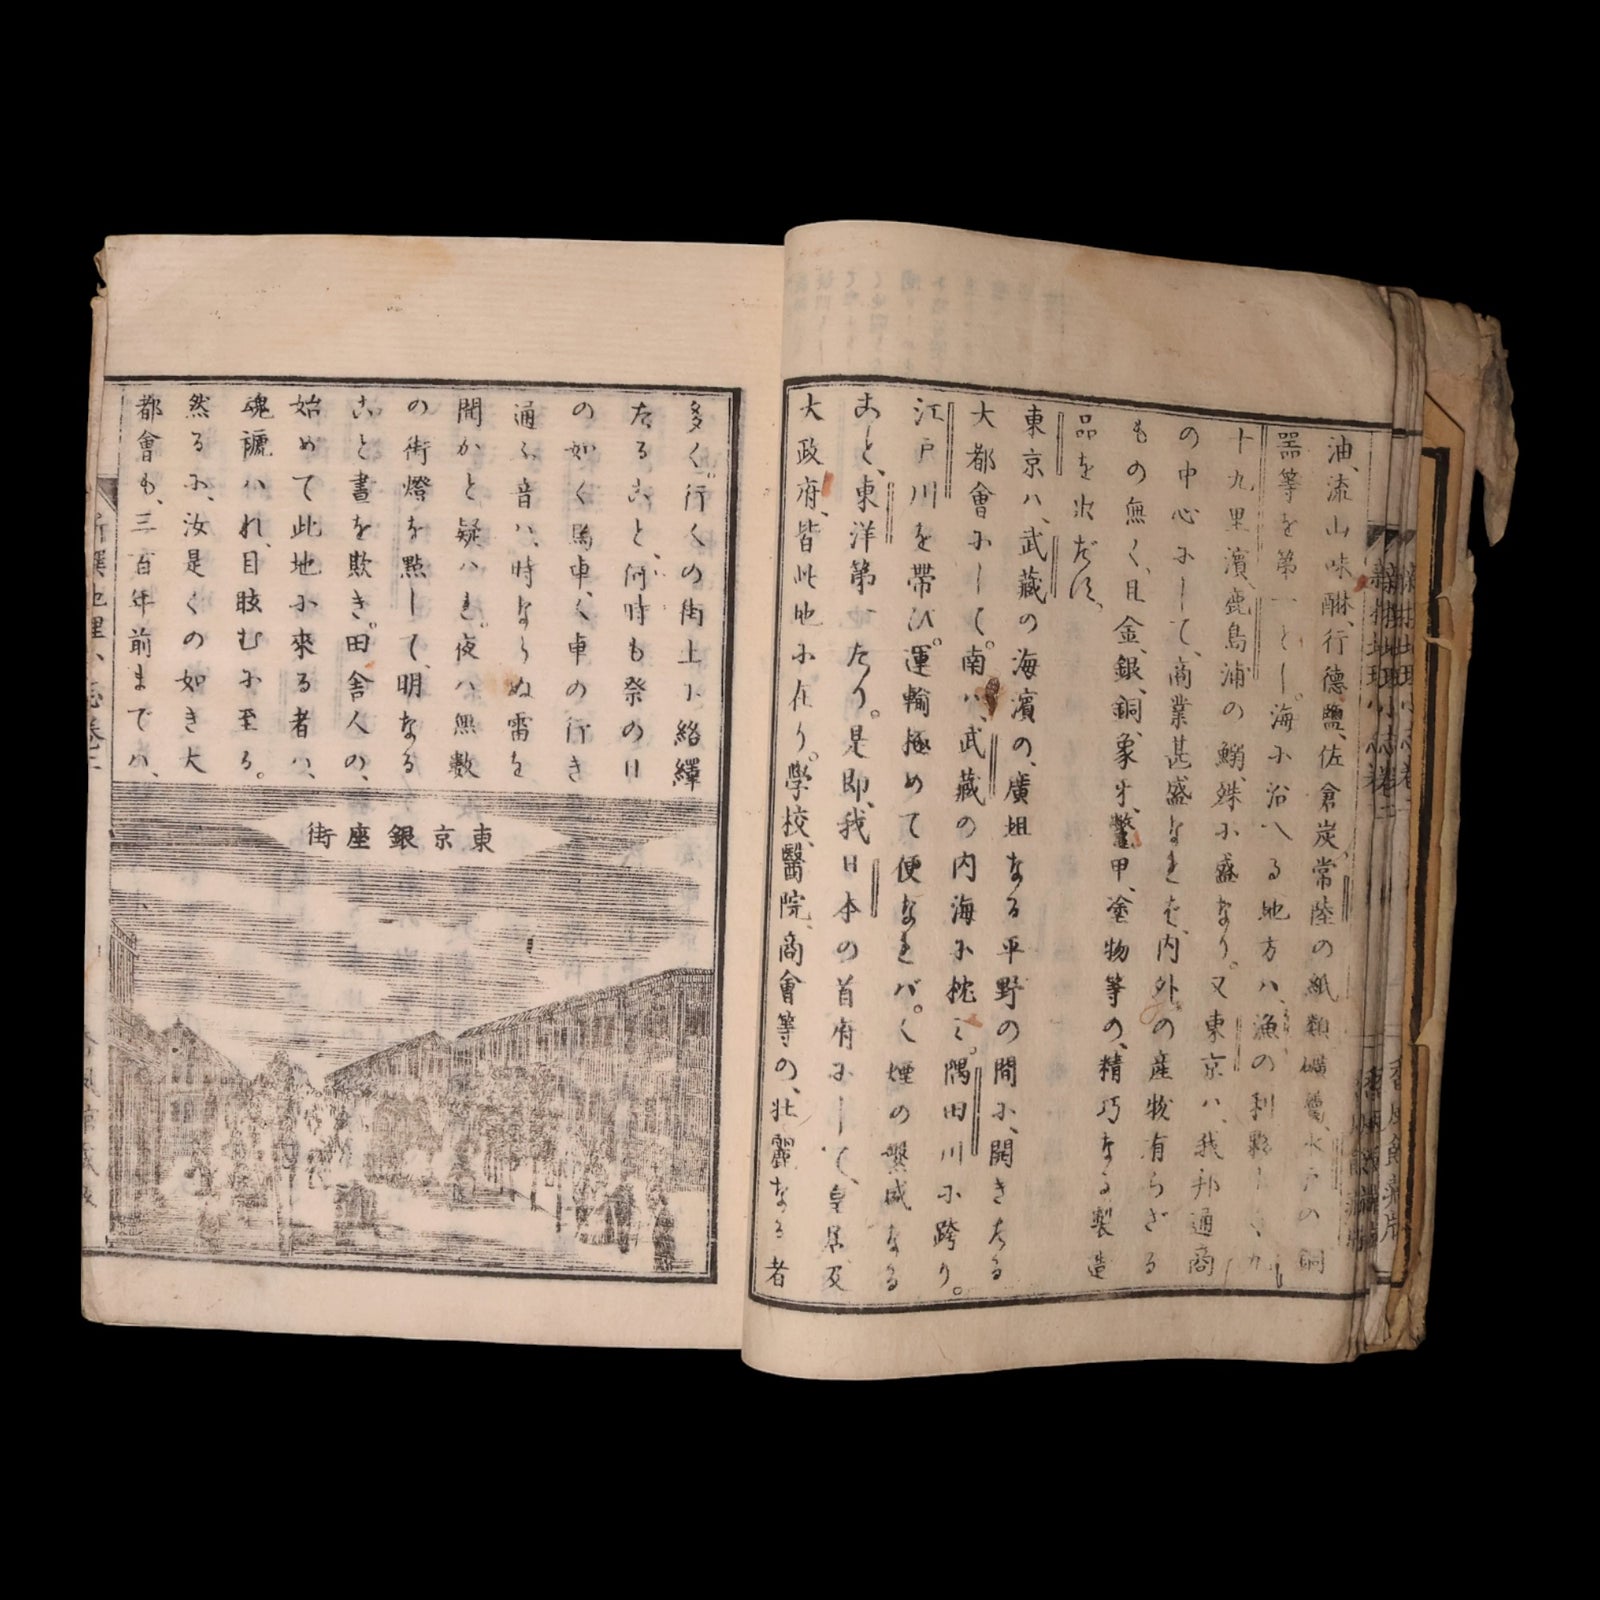 油、流山味醂、行德鹽、佐倉炭、常陸の紙類、礦、水戸の銅
器等を第一とし。海に沿へる地方ハ、漁の利
十九里濱、鹿島浦の鰯、殊に盛なり。又東京ハ、我邦通商
の中心にして、商業甚盛なれど、内外の産物有らざる
もの無く、且金、銀、銅、象牙、鼈甲、塗物等の、精巧なる製造
品を出だす、
東京ハ、武藏の海濱の、廣坦なる平野の間に、開きたる
大都會にして。南ハ、武藏の内海に枕ミ。隅田川に跨り。
江戸川を帶び。運輸極めて便なれバ。人煙の繁盛なる
こと、東洋第一たり。是即、我日本の首府にして、皇居及
大政府、皆此地に在り。學校、醫院、商會等の、壯麗なる者
多く。行くの街上に絡繹
たること、何時も祭の日
の如く馬車、人車の行き
通ふ音ハ、時ならぬ雷を
聞かと疑ハれ。夜ハ無數
の街燈を點して、明なる
こと晝を欺き。田舎人の、
始めて此地に來る者ハ、
魂褫ハれ、目眩むに至る。
然るに、汝是くの如き大
都會も、三百年前までハ、
東京銀座街
新撰地理小志卷二